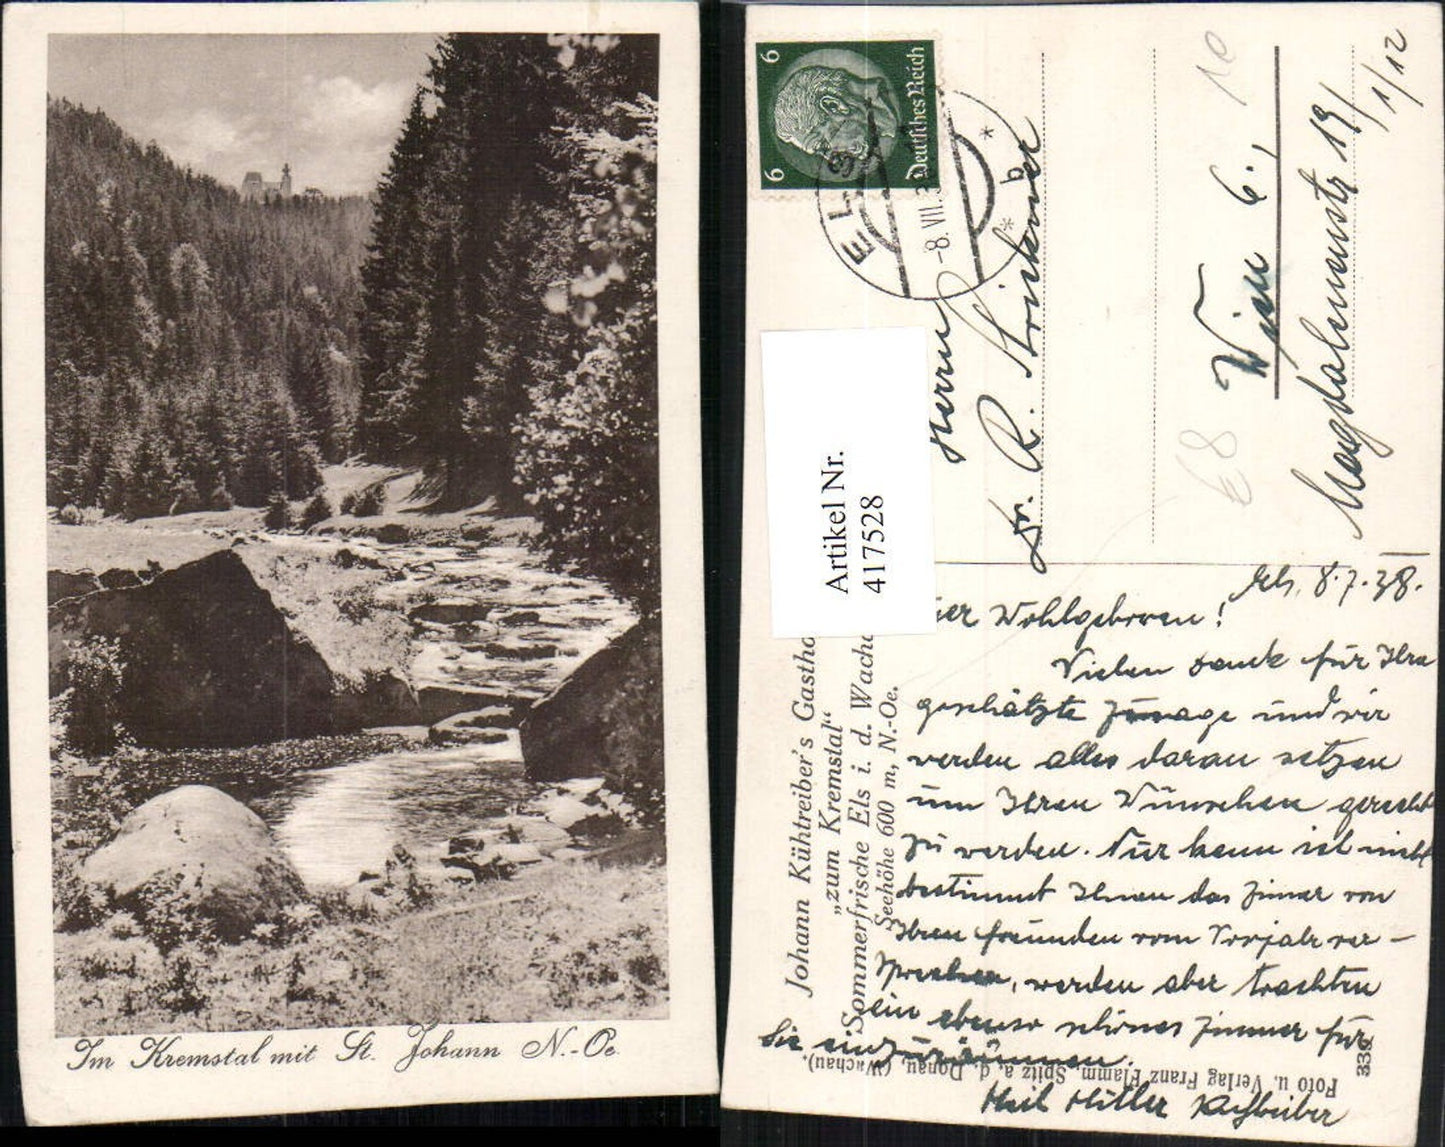 Im Kremstal mit St. Johann N.-Oe.
6
6
Deutsches Reich
ELS
-8. VII. 3
* b *
Artikel Nr.
417528
10
E8
Herrn
Dr. R.
Wien 6.,
Magdalenenstr. 19/
1/12
Johann Kühtreiber's Gastho
„zum Kremstal“
Sommerfrische Els i. d. Wacha
Seehöhe 600 m, N.-Oe.
Foto u. Verlag Franz Flamm, Spitz a. d. Donau, (Wachau).
336
Els, 8.7.38.
Wohlgeboren!
Vielen Dank für Ihre
geschätzte Zusage und wir
werden alles daran setzen
um Ihren Wünschen gerecht
zu werden. Nur kann ich nicht
bestimmt Ihnen das Zimer von
Ihren freunden vom Vorjahr ver-
sprechen, werden aber trachten
ein ebenso schönes Zimmer für
Sie einzuräumen.
Heil Hitler Kühtreiber